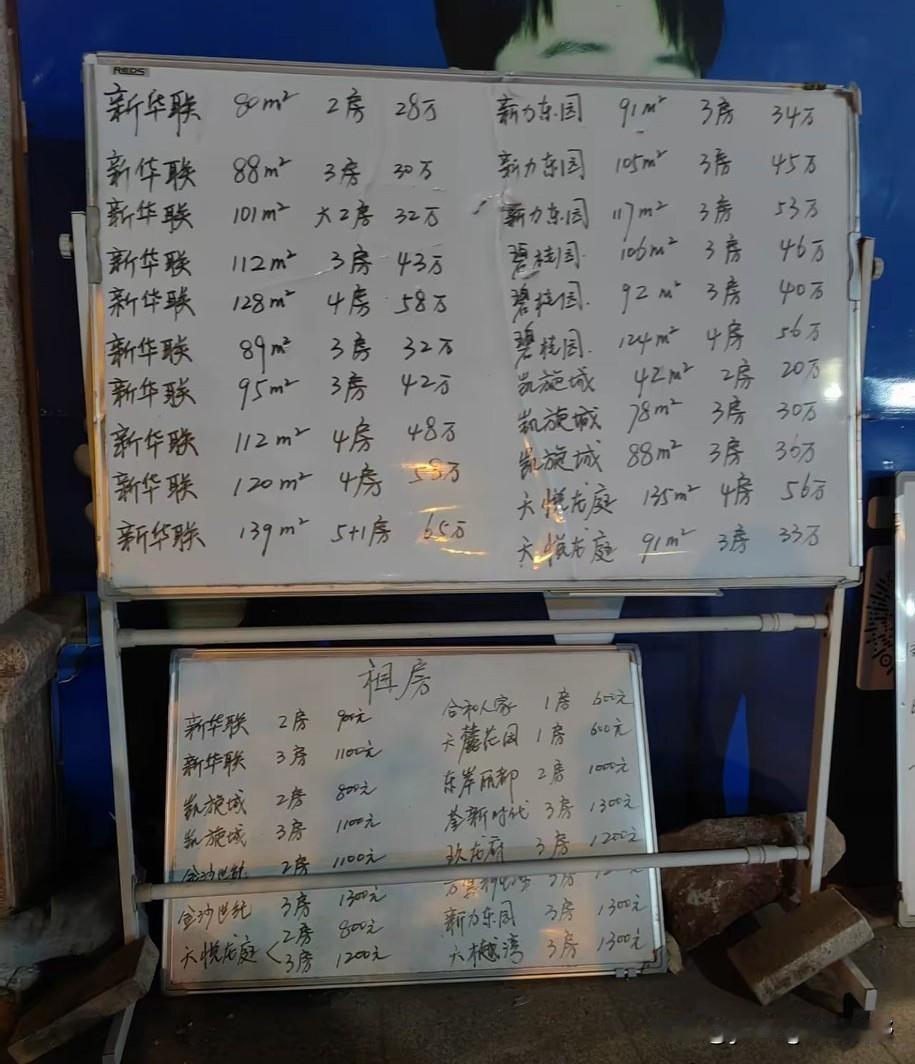 REDS
新华联 80m² 2房 28万
新华联 88m² 3房 30万
新华联 101m² 大2房 32万
新华联 112m² 3房 43万
新华联 128m² 4房 58万
新华联 89m² 3房 32万
新华联 95m² 3房 42万
新华联 112m² 4房 48万
新华联 120m² 4房 58万
新华联 139m² 5+1房 65万
新力东园 91m² 3房 34万
新力东园 105m² 3房 45万
新力东园 117m² 3房 53万
碧桂园 106m² 3房 46万
碧桂园 92m² 3房 40万
碧桂园 124m² 4房 56万
凯旋城 42m² 2房 20万
凯旋城 78m² 3房 30万
凯旋城 88m² 3房 36万
天悦龙庭 135m² 4房 56万
天悦龙庭 91m² 3房 33万
租房
新华联 2房 900元
新华联 3房 1100元
凯旋城 2房 800元
凯旋城 3房 1100元
金沙世纪 2房 1100元
金沙世纪 3房 1300元
天悦龙庭 2房 800元
3房 1200元
合和人家 1房 600元
天麓花园 1房 600元
东岸丽都 2房 1000元
荃新时代 3房 1300元
玖龙府 3房 1200元
3房
新力东园 3房 1300元
天樾湾 3房 1300元